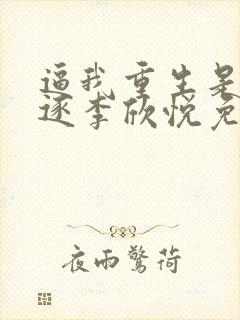 逼我重生是
逐李欣悦免
夜雨惊荷